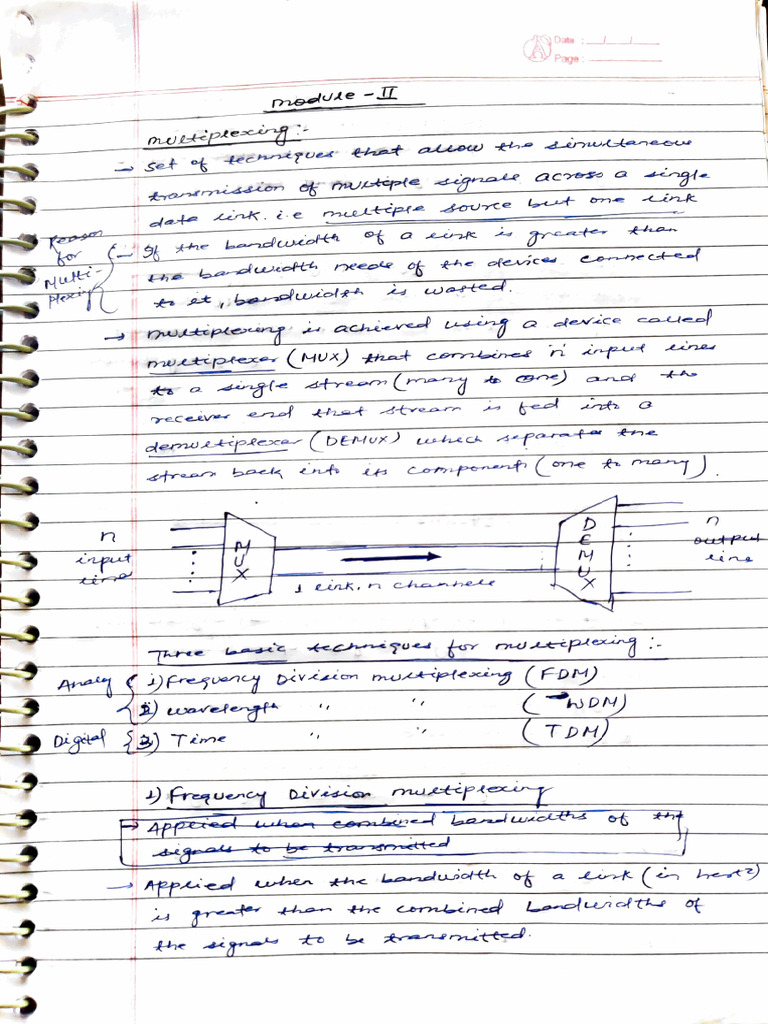 Date : __/__/__
Page : ______
Module - II
Multiplexing :-
→ Set of techniques that allow the simultaneous
transmission of multiple signals across a single
data link. i.e multiple source but one link
Reason for Multi-plexing { – If the bandwidth of a link is greater than
the bandwidth needs of the devices connected
to it, bandwidth is wasted.
→ Multiplexing is achieved using a device called
multiplexer (MUX) that combines 'n' input lines
to a single stream (many to one) and the
receiver end that stream is fed into a
demultiplexer (DEMUX) which separates the
stream back into its components (one to many).
n input line
MUX
1 link, n channels
DEMUX
n output line
Three basic techniques for multiplexing :-
Analog { 1) Frequency Division Multiplexing (FDM)
2) Wavelength " " (WDM)
Digital { 3) Time " " (TDM)
1) Frequency Division Multiplexing
→ Applied when combined bandwidths of the
signals to be transmitted
→ Applied when the bandwidth of a link (in hertz)
is greater than the combined bandwidths of
the signals to be transmitted.